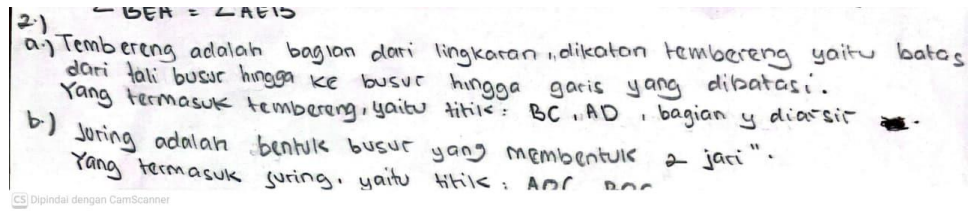 ∠BEA = ∠AEB
2.)
a.) Tembereng adalah bagian dari lingkaran, dikatan tembereng yaitu batas
dari tali busur hingga ke busur hingga garis yang dibatasi.
Yang termasuk tembereng, yaitu titik: BC, AD, bagian y diarsir
b.) Juring adalah bentuk busur yang membentuk 2 jari".
Yang termasuk juring, yaitu titik:
CS Dipindai dengan CamScanner